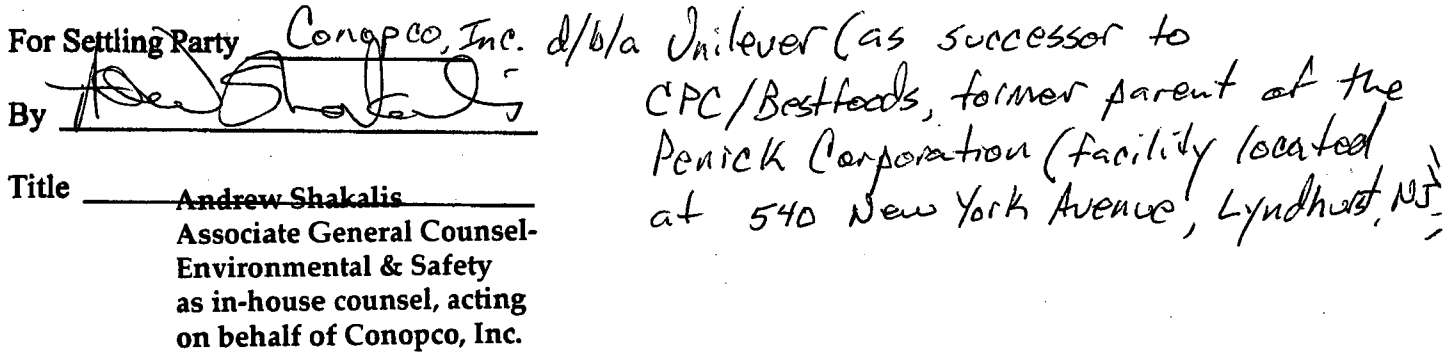 For Settling Party Conopco, Inc. d/b/a Unilever (as successor to
CPC/Bestfoods, former parent of the
By
Penick Corporation (facility located
at 540 New York Avenue, Lyndhurst, NJ)
Title Andrew Shakalis
Associate General Counsel-
Environmental & Safety
as in-house counsel, acting
on behalf of Conopco, Inc.